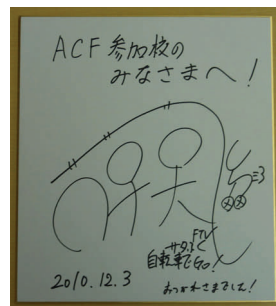 ACF 参加校の
みなさまへ!
FTV
サタふく
自転車でGo!
2010.12.3
おつかれさまでした!